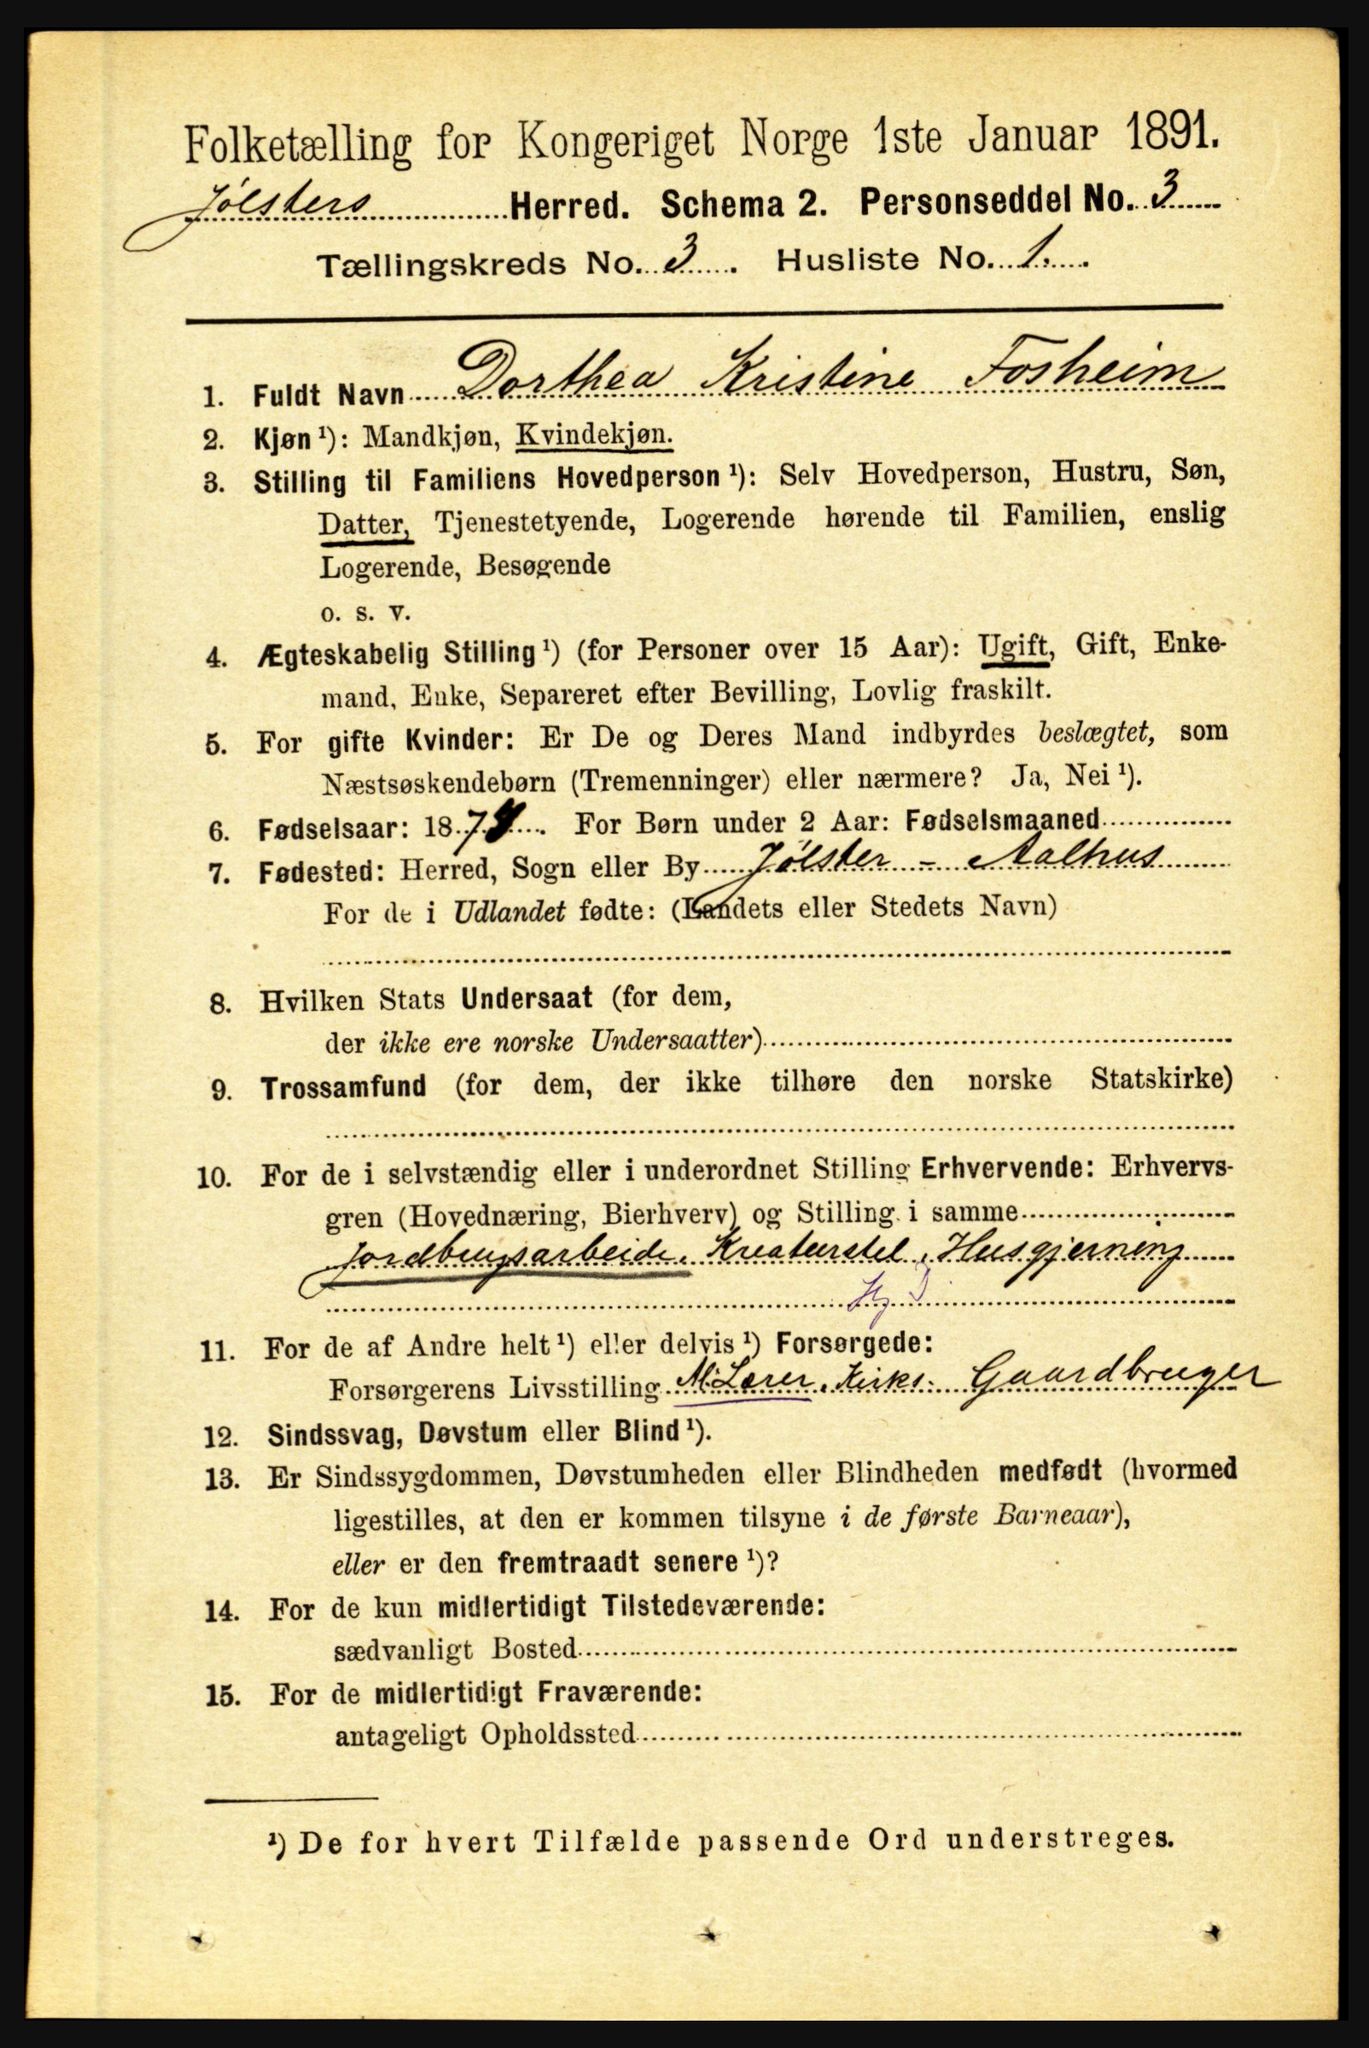 Folketælling for Kongeriget Norge 1ste Januar 1891.
Jølsters Herred. Schema 2. Personseddel No. 3
Tællingskreds No. 3. Husliste No. 1.
1. Fuldt Navn Dorthea Kristine Fosheim
2. Kjøn ¹): Mandkjøn, Kvindekjøn.
3. Stilling til Familiens Hovedperson ¹): Selv Hovedperson, Hustru, Søn,
Datter, Tjenestetyende, Logerende hørende til Familien, enslig
Logerende, Besøgende
o. s. v.
4. Ægteskabelig Stilling ¹) (for Personer over 15 Aar): Ugift, Gift, Enke-
mand, Enke, Separeret efter Bevilling, Lovlig fraskilt.
5. For gifte Kvinder: Er De og Deres Mand indbyrdes beslægtet, som
Næstsøskendebørn (Tremenninger) eller nærmere? Ja, Nei ¹).
6. Fødselsaar: 187. For Børn under 2 Aar: Fødselsmaaned
7. Fødested: Herred, Sogn eller By Jølster - Aalhus
For de i Udlandet fødte: (Landets eller Stedets Navn)
8. Hvilken Stats Undersaat (for dem,
der ikke ere norske Undersaatter)
9. Trossamfund (for dem, der ikke tilhøre den norske Statskirke)
10. For de i selvstændig eller i underordnet Stilling Erhvervende: Erhvervs-
gren (Hovednæring, Bierhverv) og Stilling i samme
Jordbrugsarbeide, Kreaturstel, Husgjerning
11. For de af Andre helt ¹) eller delvis ¹) Forsørgede:
Forsørgerens Livsstilling Lærer, Kirks. Gaardbruger
12. Sindssvag, Døvstum eller Blind ¹).
13. Er Sindssygdommen, Døvstumheden eller Blindheden medfødt (hvormed
ligestilles, at den er kommen tilsyne i de første Barneaar),
eller er den fremtraadt senere ¹)?
14. For de kun midlertidigt Tilstedeværende:
sædvanligt Bosted
15. For de midlertidigt Fraværende:
antageligt Opholdssted
¹) De for hvert Tilfælde passende Ord understreges.